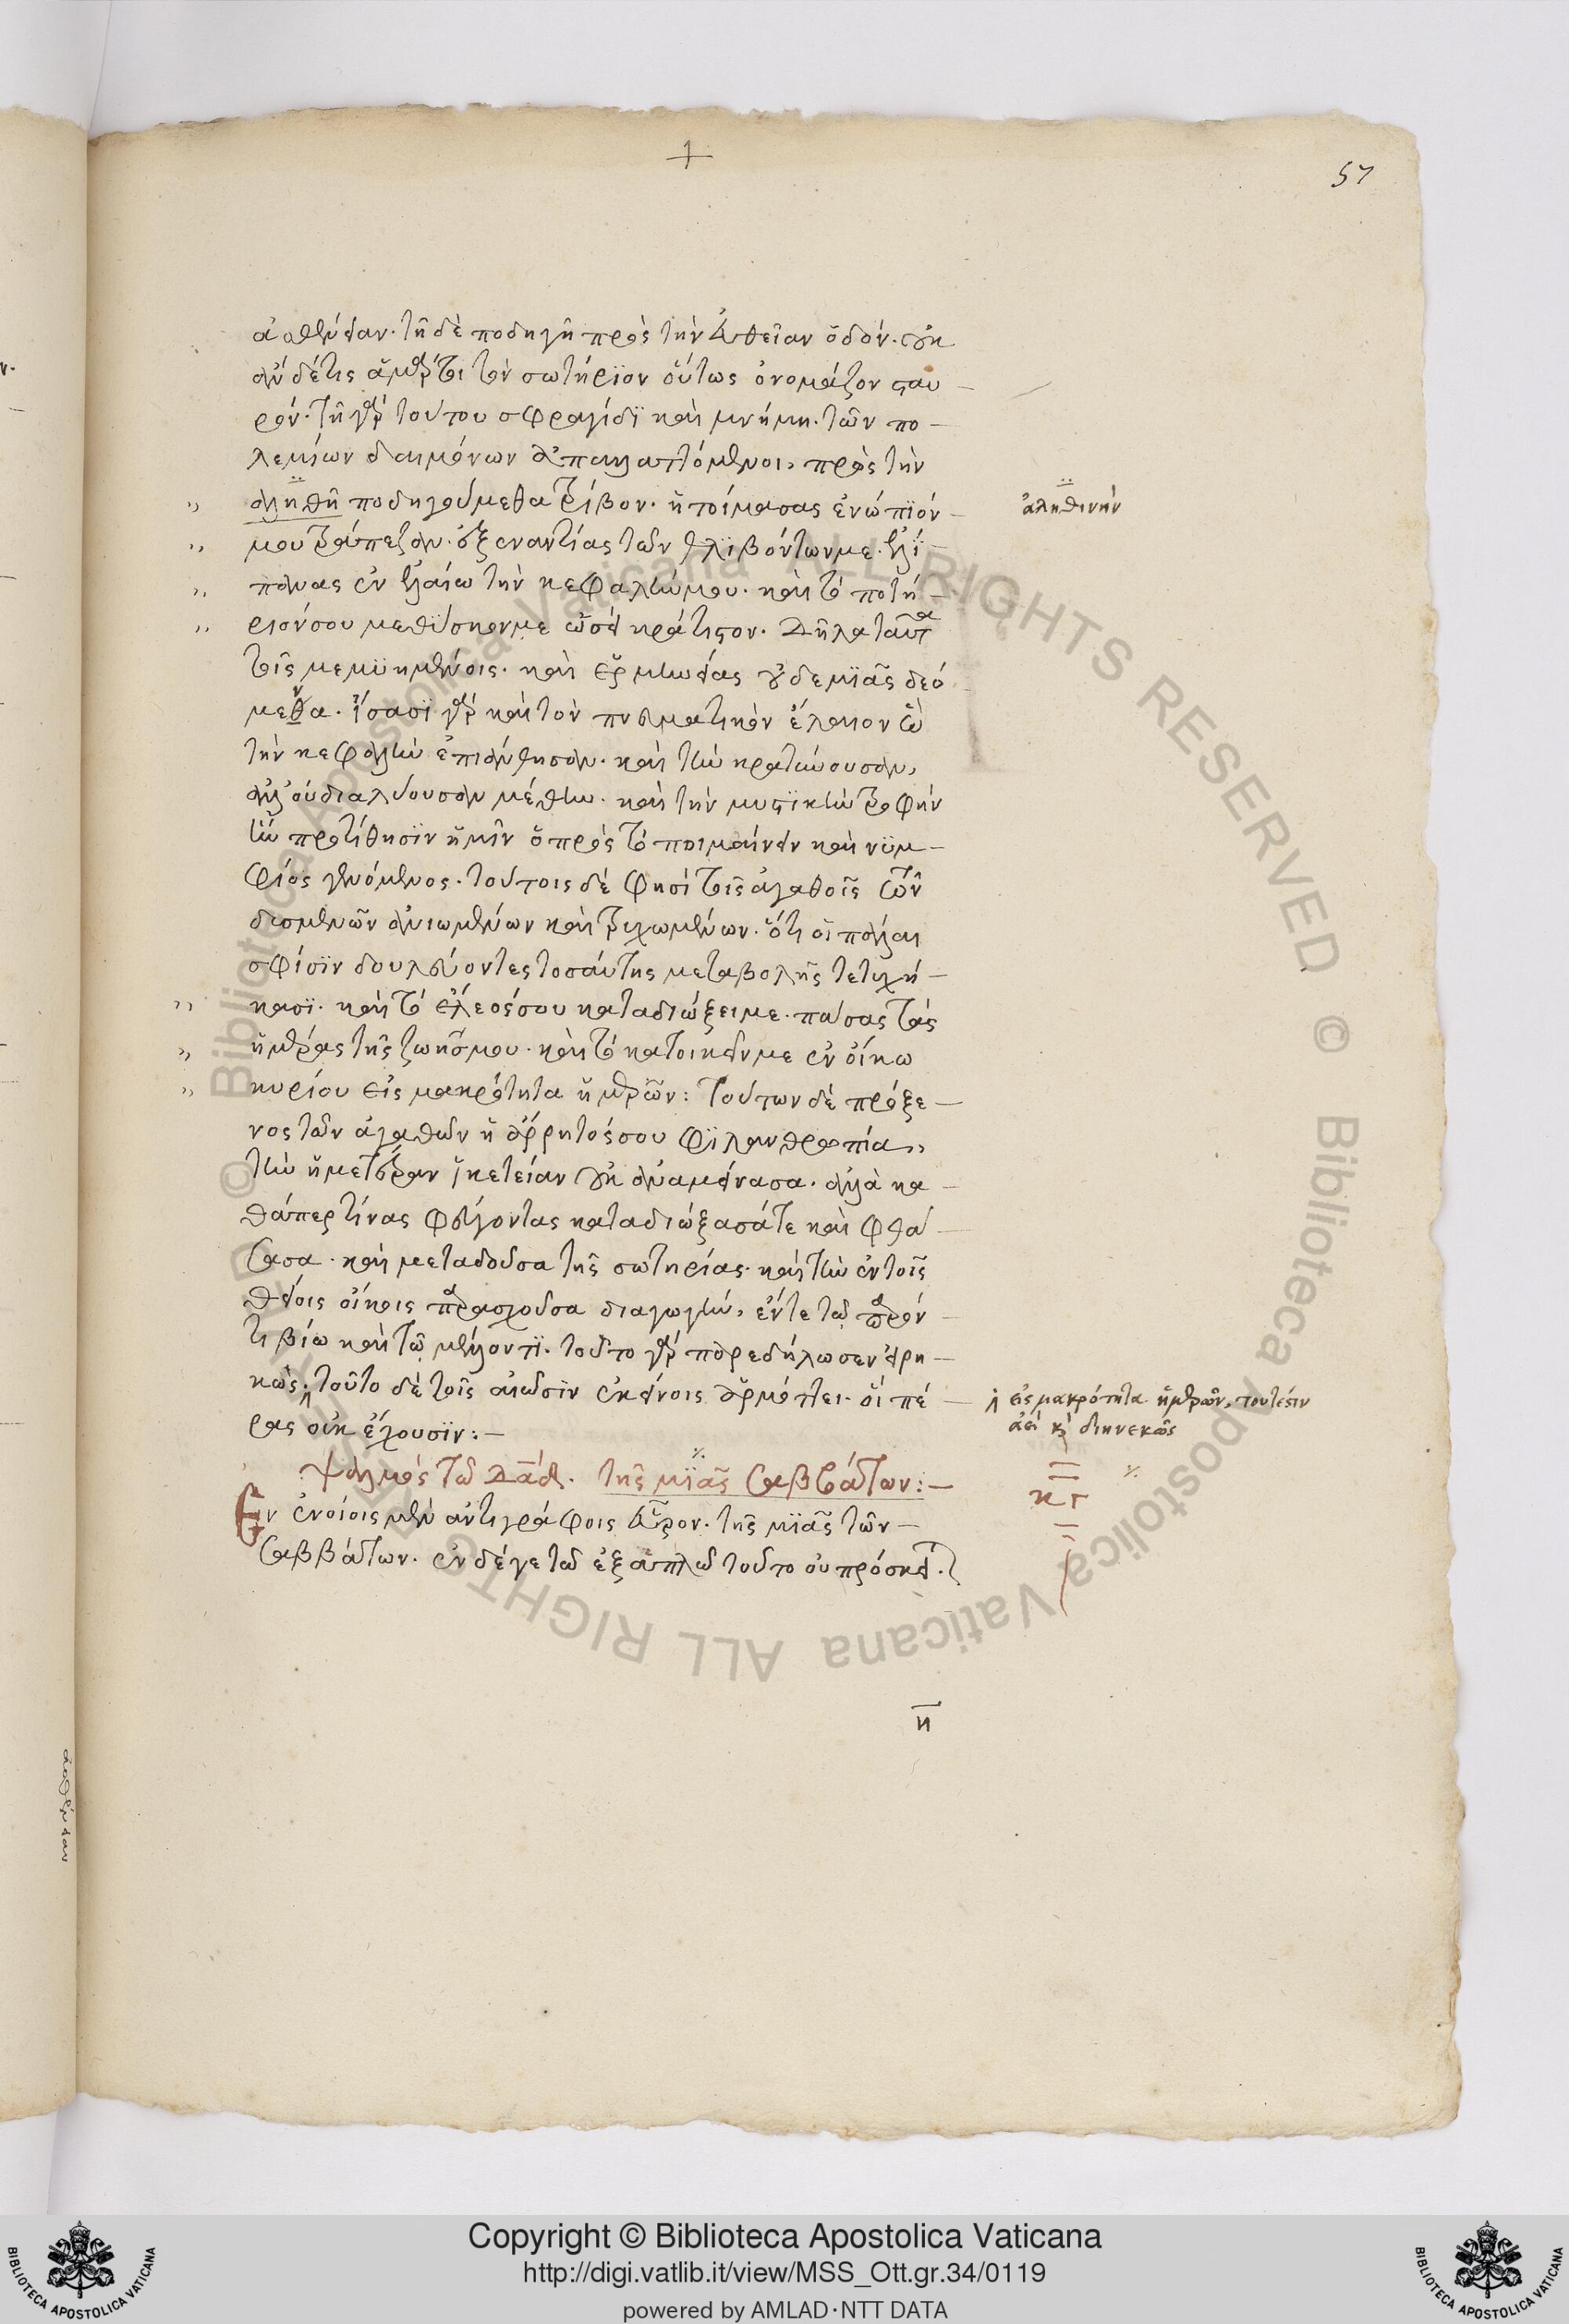 57
ἀσθένειαν· τῆ δὲ ποδηγῆ πρὸς τὴν εὐθεῖαν ὁδόν· οὐκ
ἂν δέ τις ἁμάρτοι τὸν σωτήριον οὕτως ὀνομάζων σταυ
ρόν· τῆ γὰρ τούτου σφραγίδι καὶ μνήμη· τῶν πο
λεμίων δαιμόνων ἀπαλλαττόμενοι, πρὸς τὴν
ἀληθῆ ποδηγούμεθα τρίβον· ἡτοίμασας ἐνώπιόν
ἀληθινὴν
μου τράπεζαν· ἐξεναντίας τῶν θλιβόντων με· ἐλί
πανας ἐν ἐλαίω τὴν κεφαλήν μου· καὶ τὸ ποτή
ριόν σου μεθύσκον με ὡσεὶ κράτιστον· Δῆλα ταῦτα
τοῖς μεμυημένοις· καὶ ἑρμηνείας οὐδεμιᾶς δεό
μενα· ἴσασι γὰρ καὶ τὸν πνευματικὸν ἔλαιον ὧ
τὴν κεφαλὴν ἐπιάνθησαν· καὶ τὴν κρατύνουσαν,
ἀλλ' οὐ διαλύουσαν μέθην· καὶ τὴν μυστικὴν τροφὴν
ἣν προτίθησιν ἡμῖν ὁ πρὸς τὸ ποιμαίνειν καὶ νυμ
φίος γενόμενος· τούτοις δέ φησι τοῖς ἀγαθοῖς τῶν
δυσμενῶν ἀνιωμένων καὶ τρυχωμένων· ὅτι οἱ πάλαι
σφίσιν δουλεύοντες τοσαύτης μεταβολῆς τετυχή
κασι· καὶ τὸ ἔλεός σου καταδιώξει με· πάσας τὰς
ἡμέρας τῆς ζωῆς μου· καὶ τὸ κατοικεῖν με ἐν οἴκω
κυρίου εἰς μακρότητα ἡμερῶν: Τούτων δὲ πρόξε
νος τῶν ἀγαθῶν ἡ ἄρρητός σου φιλανθρωπία,
τὴν ἡμετέραν ἱκετείαν οὐκ ἀναμείνασα· ἀλλὰ κα
θάπερ τινας φεύγοντας καταδιώξασά τε καὶ φθά
σασα· καὶ μεταδοῦσα τῆς σωτηρίας· καὶ τὴν ἐν τοῖς
θείοις οἴκοις παρασχοῦσα διαγωγήν, ἔν τε τῶ παρόν
τι βίω καὶ τῶ μέλλοντι· τοῦτο γὰρ παρεδήλωσεν εἰρη
κώς· τοῦτο δὲ τοῖς αἰῶσιν ἐκείνοις ἁρμόττει· οἳ πέ
εἰς μακρότητα ἡμερῶν, τουτέστιν
ἀεὶ καὶ διηνεκῶς
ρας οὐκ ἔχουσιν:—
Ψαλμὸς τῶ Δαδ. τῆς μιᾶς σαββάτων:—
κγ
Ἐν ἐνίοις μὲν ἀντιγράφοις εὗρον· τῆς μιᾶς τῶν
σαββάτων· ἐν δέ γε τῶ ἑξαπλῶ τοῦτο οὐ πρόσκειτ.
η
ἀσθένειαν
© Biblioteca Apostolica Vaticana ALL RIGHTS RESERVED © Biblioteca Apostolica Vaticana ALL RIGHTS RESERVED
Copyright © Biblioteca Apostolica Vaticana
http://digi.vatlib.it/view/MSS_Ott.gr.34/0119
powered by AMLAD·NTT DATA
BIBLIOTECA APOSTOLICA VATICANA
BIBLIOTECA APOSTOLICA VATICANA